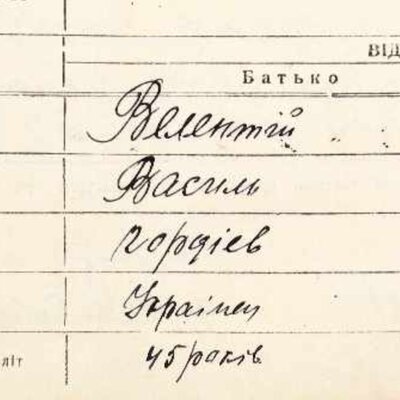 ВІД
Батько
Велентій
Василь
Гордієв
Українец
літ
45 років